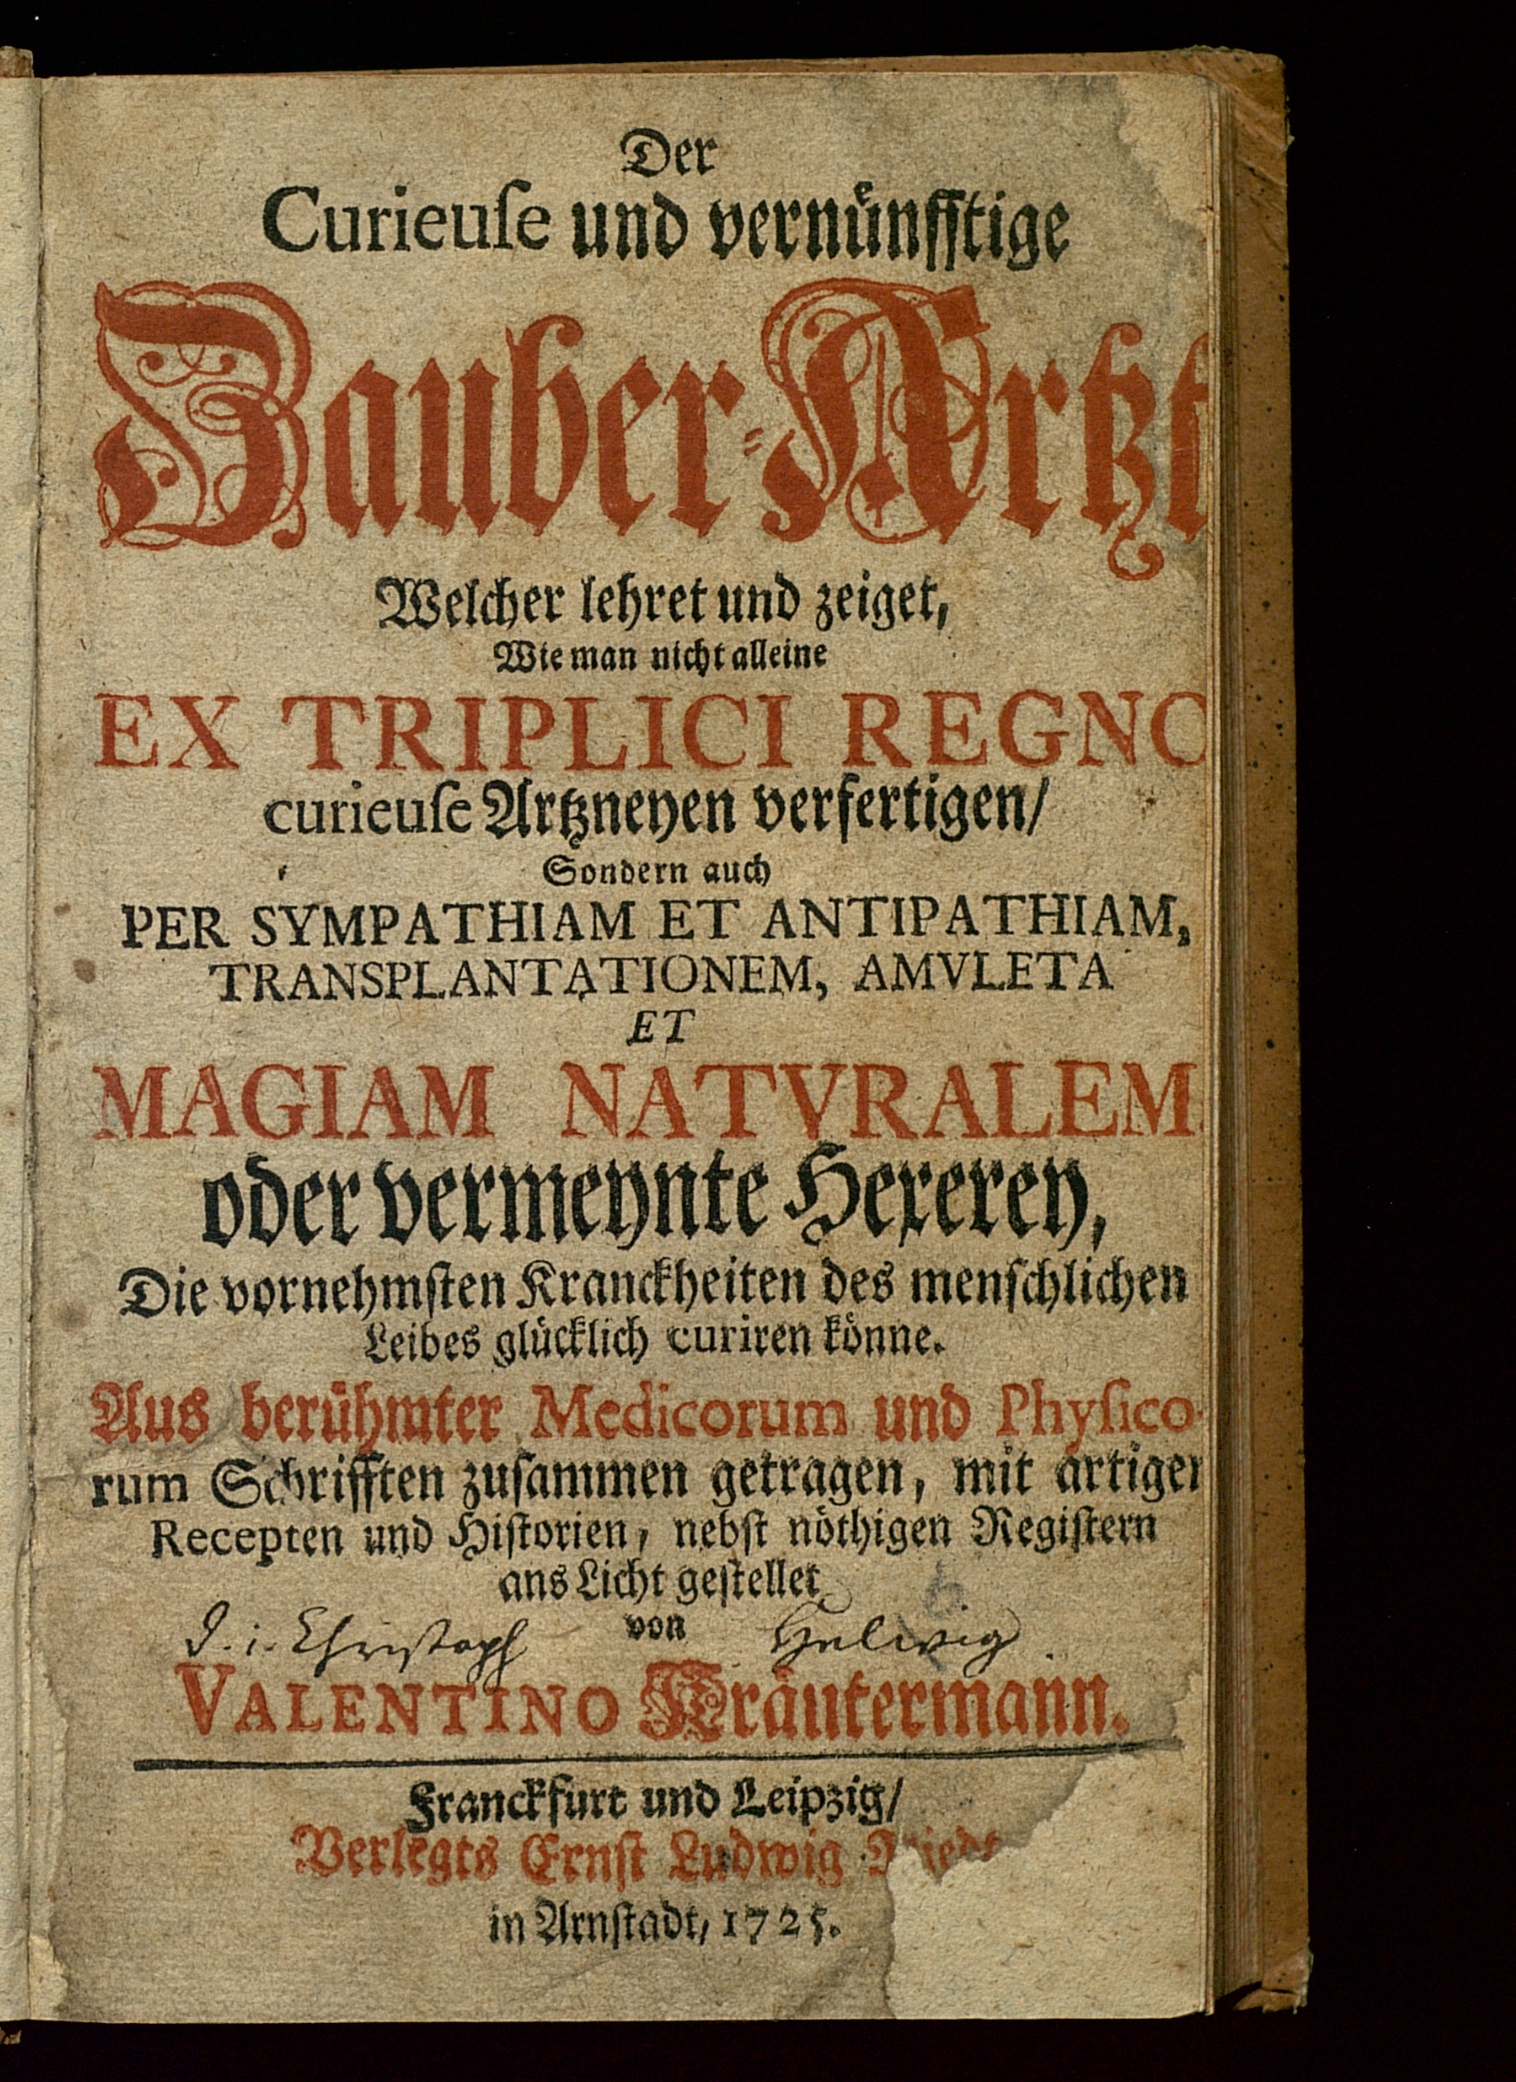 Der
Curieuſe und vernuͤnfftige
Zauber-Artzt
Welcher lehret und zeiget,
Wie man nicht alleine
EX TRIPLICI REGNO
curieuſe Artzneyen verfertigen/
Sondern auch
PER SYMPATHIAM ET ANTIPATHIAM,
TRANSPLANTATIONEM, AMVLETA
ET
MAGIAM NATVRALEM,
oder vermeynte Hexerey,
Die vornehmſten Kranckheiten des menſchlichen
Leibes gluͤcklich curiren koͤnne.
Aus beruͤhmter Medicorum und Phyſico-
rum Schrifften zuſammen getragen, mit artigen
Recepten und Hiſtorien, nebſt noͤthigen Regiſtern
ans Licht geſtellet
von
d. i. Christoph Helwig
VALENTINO Kraͤutermann.
Franckfurt und Leipzig/
Verlegts Ernſt Ludwig
in Arnſtadt, 1725.